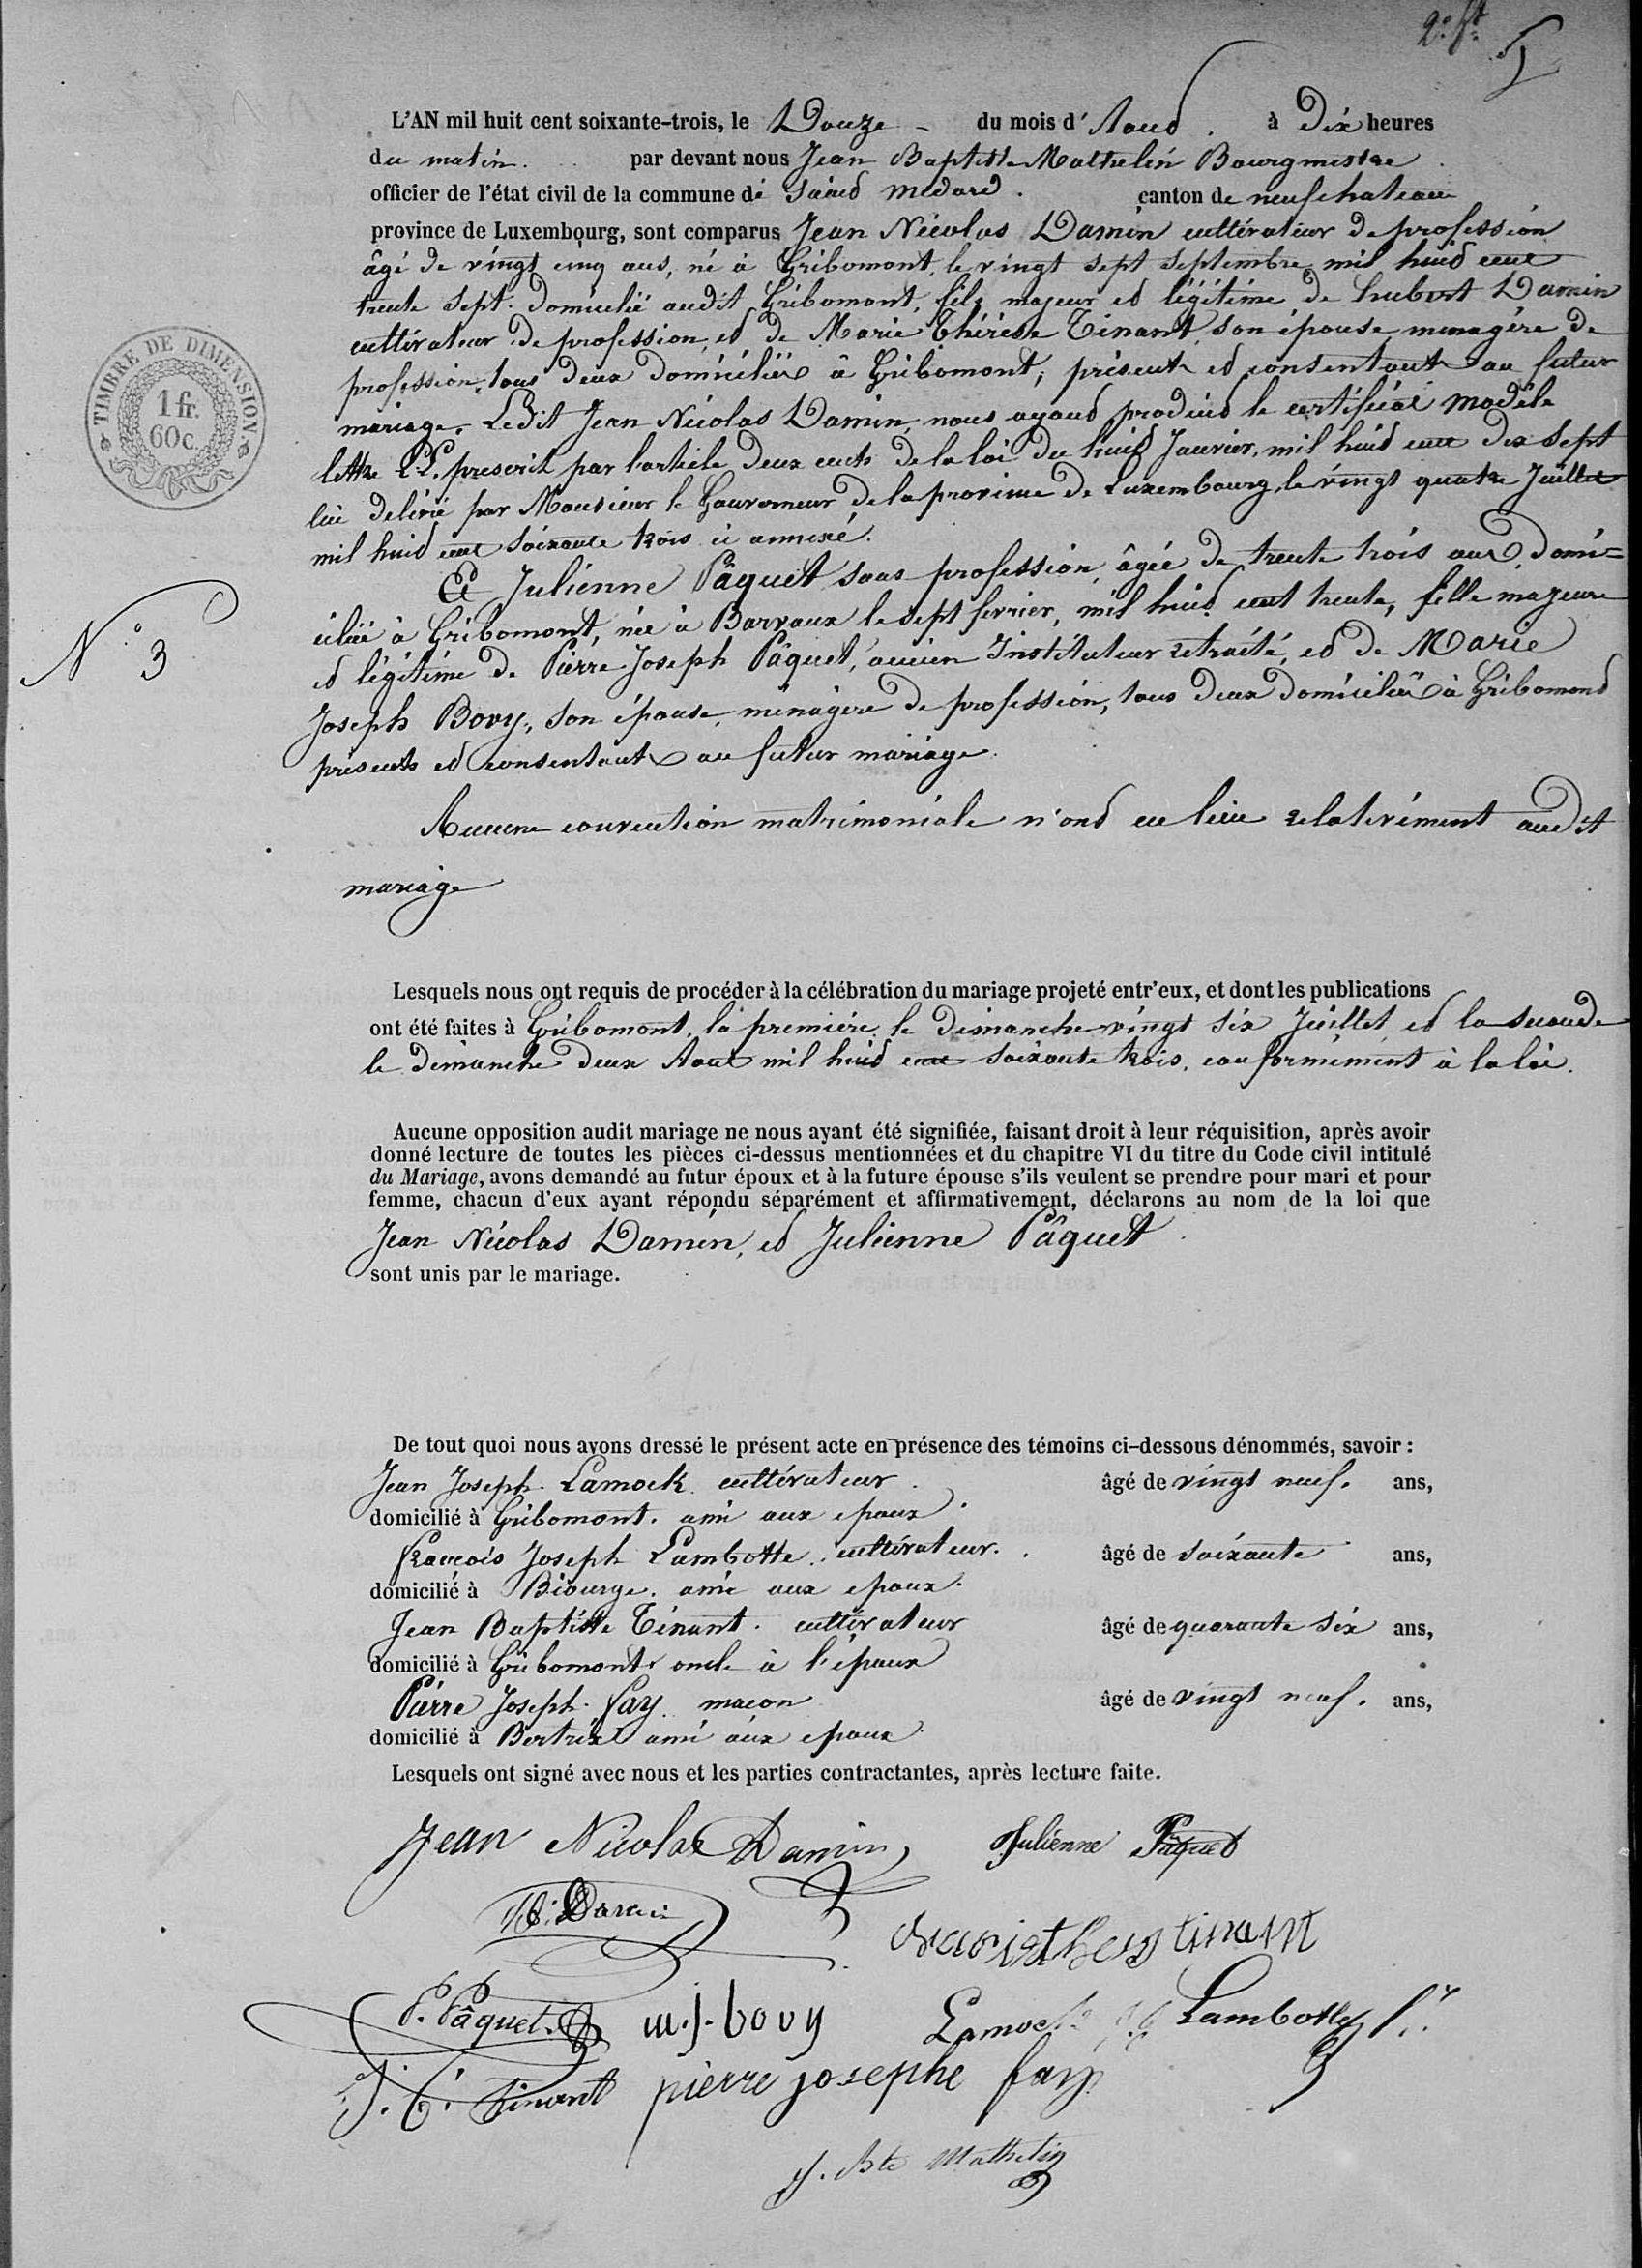 5
L'AN mil huit cent soixante-trois, le Douze du mois d'Aoud à Dix heures
du matin. par devant nous Jean Baptiste Mathelin Bourgmestre
officier de l'état civil de la commune de Saind Médard. canton de neufchateau
province de Luxembourg, sont comparus Jean Nicolas Damin cultivateur de profession
âgé de vingt cinq ans, né à Gribomont, le vingt sept septembre mil huid cent
trente sept. domicilié audit Gribomont, fils majeur ed légitime de hubert Damin
cultivateur de profession, ed de Marie Thérèse Tinant, son épouse menagère de
profession, tous deux domiciliés à Gribomont, présents ed consentants au futur
mariage. Ledit Jean Nicolas Damin, nous ayand produid le certificat modèle
lettre LL. prescrit par l'article deux cents de la loi du huid Janvier, mil huid cent dix sept
lui délivré par Monsieur le Gouverneur de la province de Luxembourg, le vingt quatre Juillet
mil huid cent soixante trois ci annexé.
Et Julienne Pâquet sans profession, âgée de trente trois ans, domi=
N° 3
ciliée à Gribomont, née à Barvaux le sept fevrier, mil huid cent trente, fille majeure
ed légitime de Pierre Joseph Pâquet, ancien Instituteur retraité, ed de Marie
Joseph Bovy, son épouse, ménagère de profession, tous deux domiciliés à Gribomond
présents ed consentants au futur mariage.
Aucune convention matrimoniale n'ond eu lieu relativement audit
mariage
TIMBRE DE DIMENSION
1 fr.
60 c.
Lesquels nous ont requis de procéder à la célébration du mariage projeté entr'eux, et dont les publications
ont été faites à Gribomont, la première, le dimanche vingt six Juillet ed la seconde
le dimanche deux Aout mil huid cent soixante trois, conformément à la loi.
Aucune opposition audit mariage ne nous ayant été signifiée, faisant droit à leur réquisition, après avoir
donné lecture de toutes les pièces ci-dessus mentionnées et du chapitre VI du titre du Code civil intitulé
du Mariage, avons demandé au futur époux et à la future épouse s'ils veulent se prendre pour mari et pour
femme, chacun d'eux ayant répondu séparément et affirmativement, déclarons au nom de la loi que
Jean Nicolas Damin, ed Julienne Pâquet
sont unis par le mariage.
De tout quoi nous avons dressé le présent acte en présence des témoins ci-dessous dénommés, savoir :
Jean Joseph Lamock cultivateur. âgé de vingt neuf. ans,
domicilié à Gribomont. ami aux epoux.
François Joseph Lambotte cultivateur. âgé de soixante ans,
domicilié à Biourge. ami aux epoux.
Jean Baptiste Tinant. cultivateur âgé de quarante six ans,
domicilié à Gribomont oncle à l'époux
Pierre Joseph Fay. macon âgé de vingt neuf. ans,
domicilié à Bertrix ami aux epoux
Lesquels ont signé avec nous et les parties contractantes, après lecture faite.
Jean Nicolas Damin, Julienne Pâquet
h. Damin
tinant
P. Pâquet. m.j. bovy Lambotte
Tinant pierre josephe fay
J. Bte Mathelin